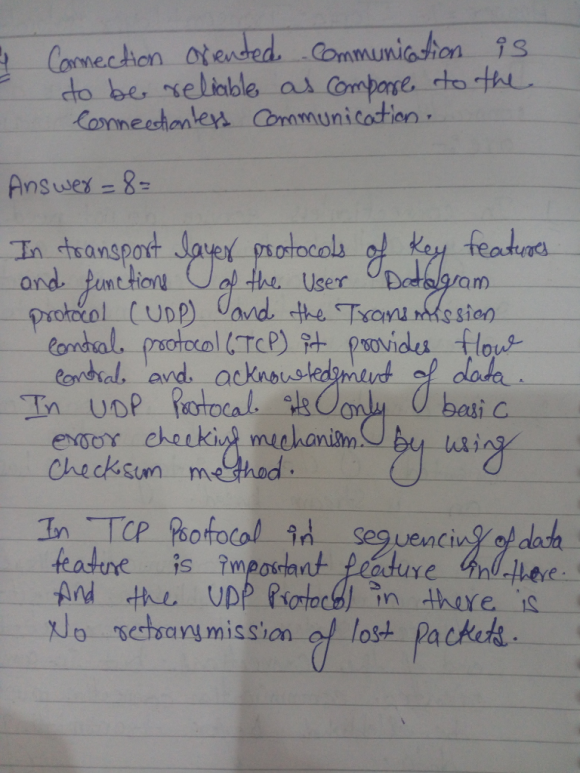 Connection oriented communication is
to be reliable as compare to the
Connectionless communication.
Answer = 8=
In transport layer protocols of key features
and functions of the User Datagram
protocol (UDP) and the Transmission
control protocol (TCP) it provides flow
control and acknowledgment of data.
In UDP Protocal its only basic
error checking mechanism by using
checksum method.
In TCP Protocal in sequencing of data
feature is important feature in there.
And the UDP Protocol in there is
No retransmission of lost packets.